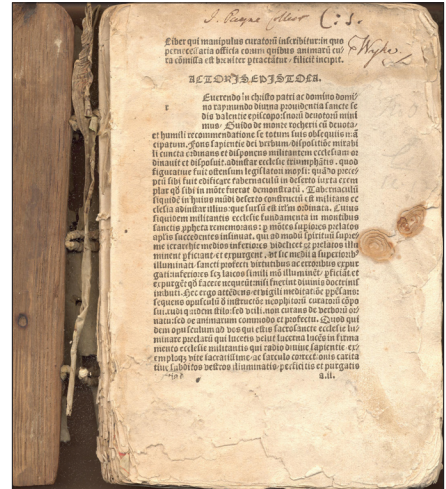 J. Payne Collier
Wyke.
Liber qui manipulus curatorū inscribitur: in quo
pernecessaria officia eorum quibus animarū cu/
ra cōmissa est breuiter ptractātur, feliciter incipit.
ACTORIS EPISTOLA.
Euerendo in christo patri ac domino domi/
r no raymundo diuina prouidentia sancte se
dis valentie episcopo: suorū deuotorū mini
mus Guido de monte rocherii cū deuota
et humili recommendatione se totum suis obsequiis
cipatum. Fons sapientie dei verbum, dispositiōe mirabi
li cuncta ordinans et disponens militantem ecclesiam or
dinauit et disposuit ad instar ecclesie triumphātis, quod
figuratiue fuit ostensum legislatori moysi: quādo prece/
pit sibi fuit edificare tabernaculū in deserto iuxta exem
plar qd sibi in mōte fuerat demonstratū. Tabernaculū
siquidē in huius mūdi deserto constructū est militans ec
clesia ad instar illius que sursū est ordinata. Cuius
siquidem militantis ecclesie fundamenta in montibus
sanctis ppheta rememorans: p mōtes superiores prelatos
apostolis succedentes insinuat, qui ad modū spiritui supre
me ierarchie medios inferiores videlicet prelatos illu
minent pficiant et expurgent, vt sic medii a superioribus
illuminati sancti profecti virtutibus ac erroribus expur
gati inferiores laicos simili mō illuminēt, pficiant et
expurgēt qd facere nequeūt nisi fuerint diuinis doctrinis
imbuti. Hec ergo attēdens et vigili meditatiōe ppensans:
sequens opusculū ad instructōe neophitorū curatorū cōpo
sui, rudi quidem stilo sed vtili, non curans de verborū or/
natu: sed de animarum commodo et profectu. Quod qui
dem opusculum ad vos qui estis sacrosancte ecclesie lu/
minare preclarū qui lucetis velut lucerna lucēs in firma
mento ecclesie militantis qui radio diuine sapientie ex/
emploqz vite sacratissime ac sarculo correctionis carita
tiue subditos vestros illuminatis, perficitis et purgatis
a.ii.